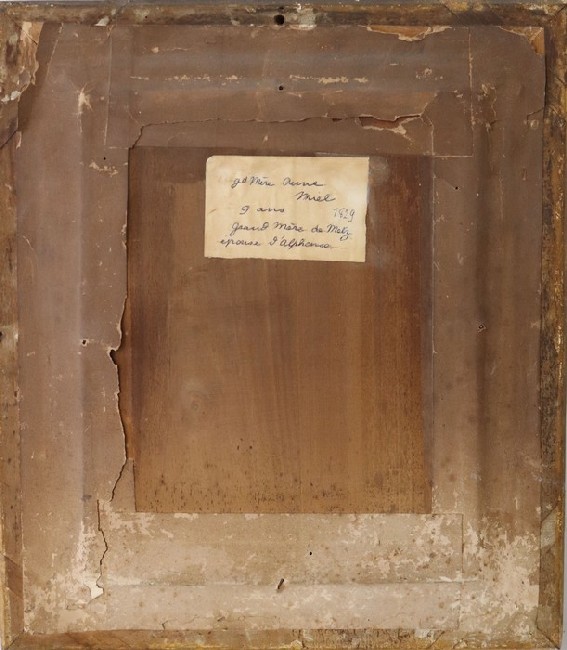 gd Mère
Miel
9 ans 1929
Grand Mère de Metz
épouse d'Alphonse